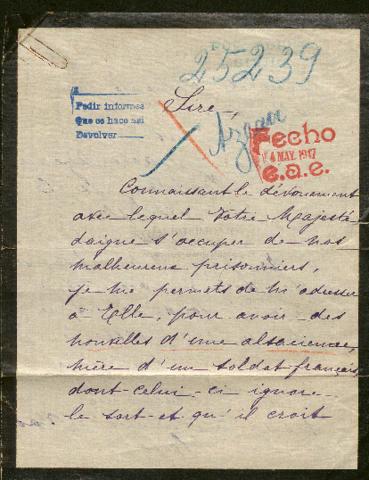 25239
Pedir informes
Que se hace asi
Devolver
Sire,
Fecho
4 MAY. 1917
e.a.e.
Connaissant le dévouement
avec lequel Votre Majesté
daigne s'occuper de nos
malheureux prisonniers,
je me permets de m'adresser
à Elle, pour avoir des
nouvelles d'une alsacienne,
mère d'un soldat français,
dont celui-ci ignore
le sort et qu'il croit